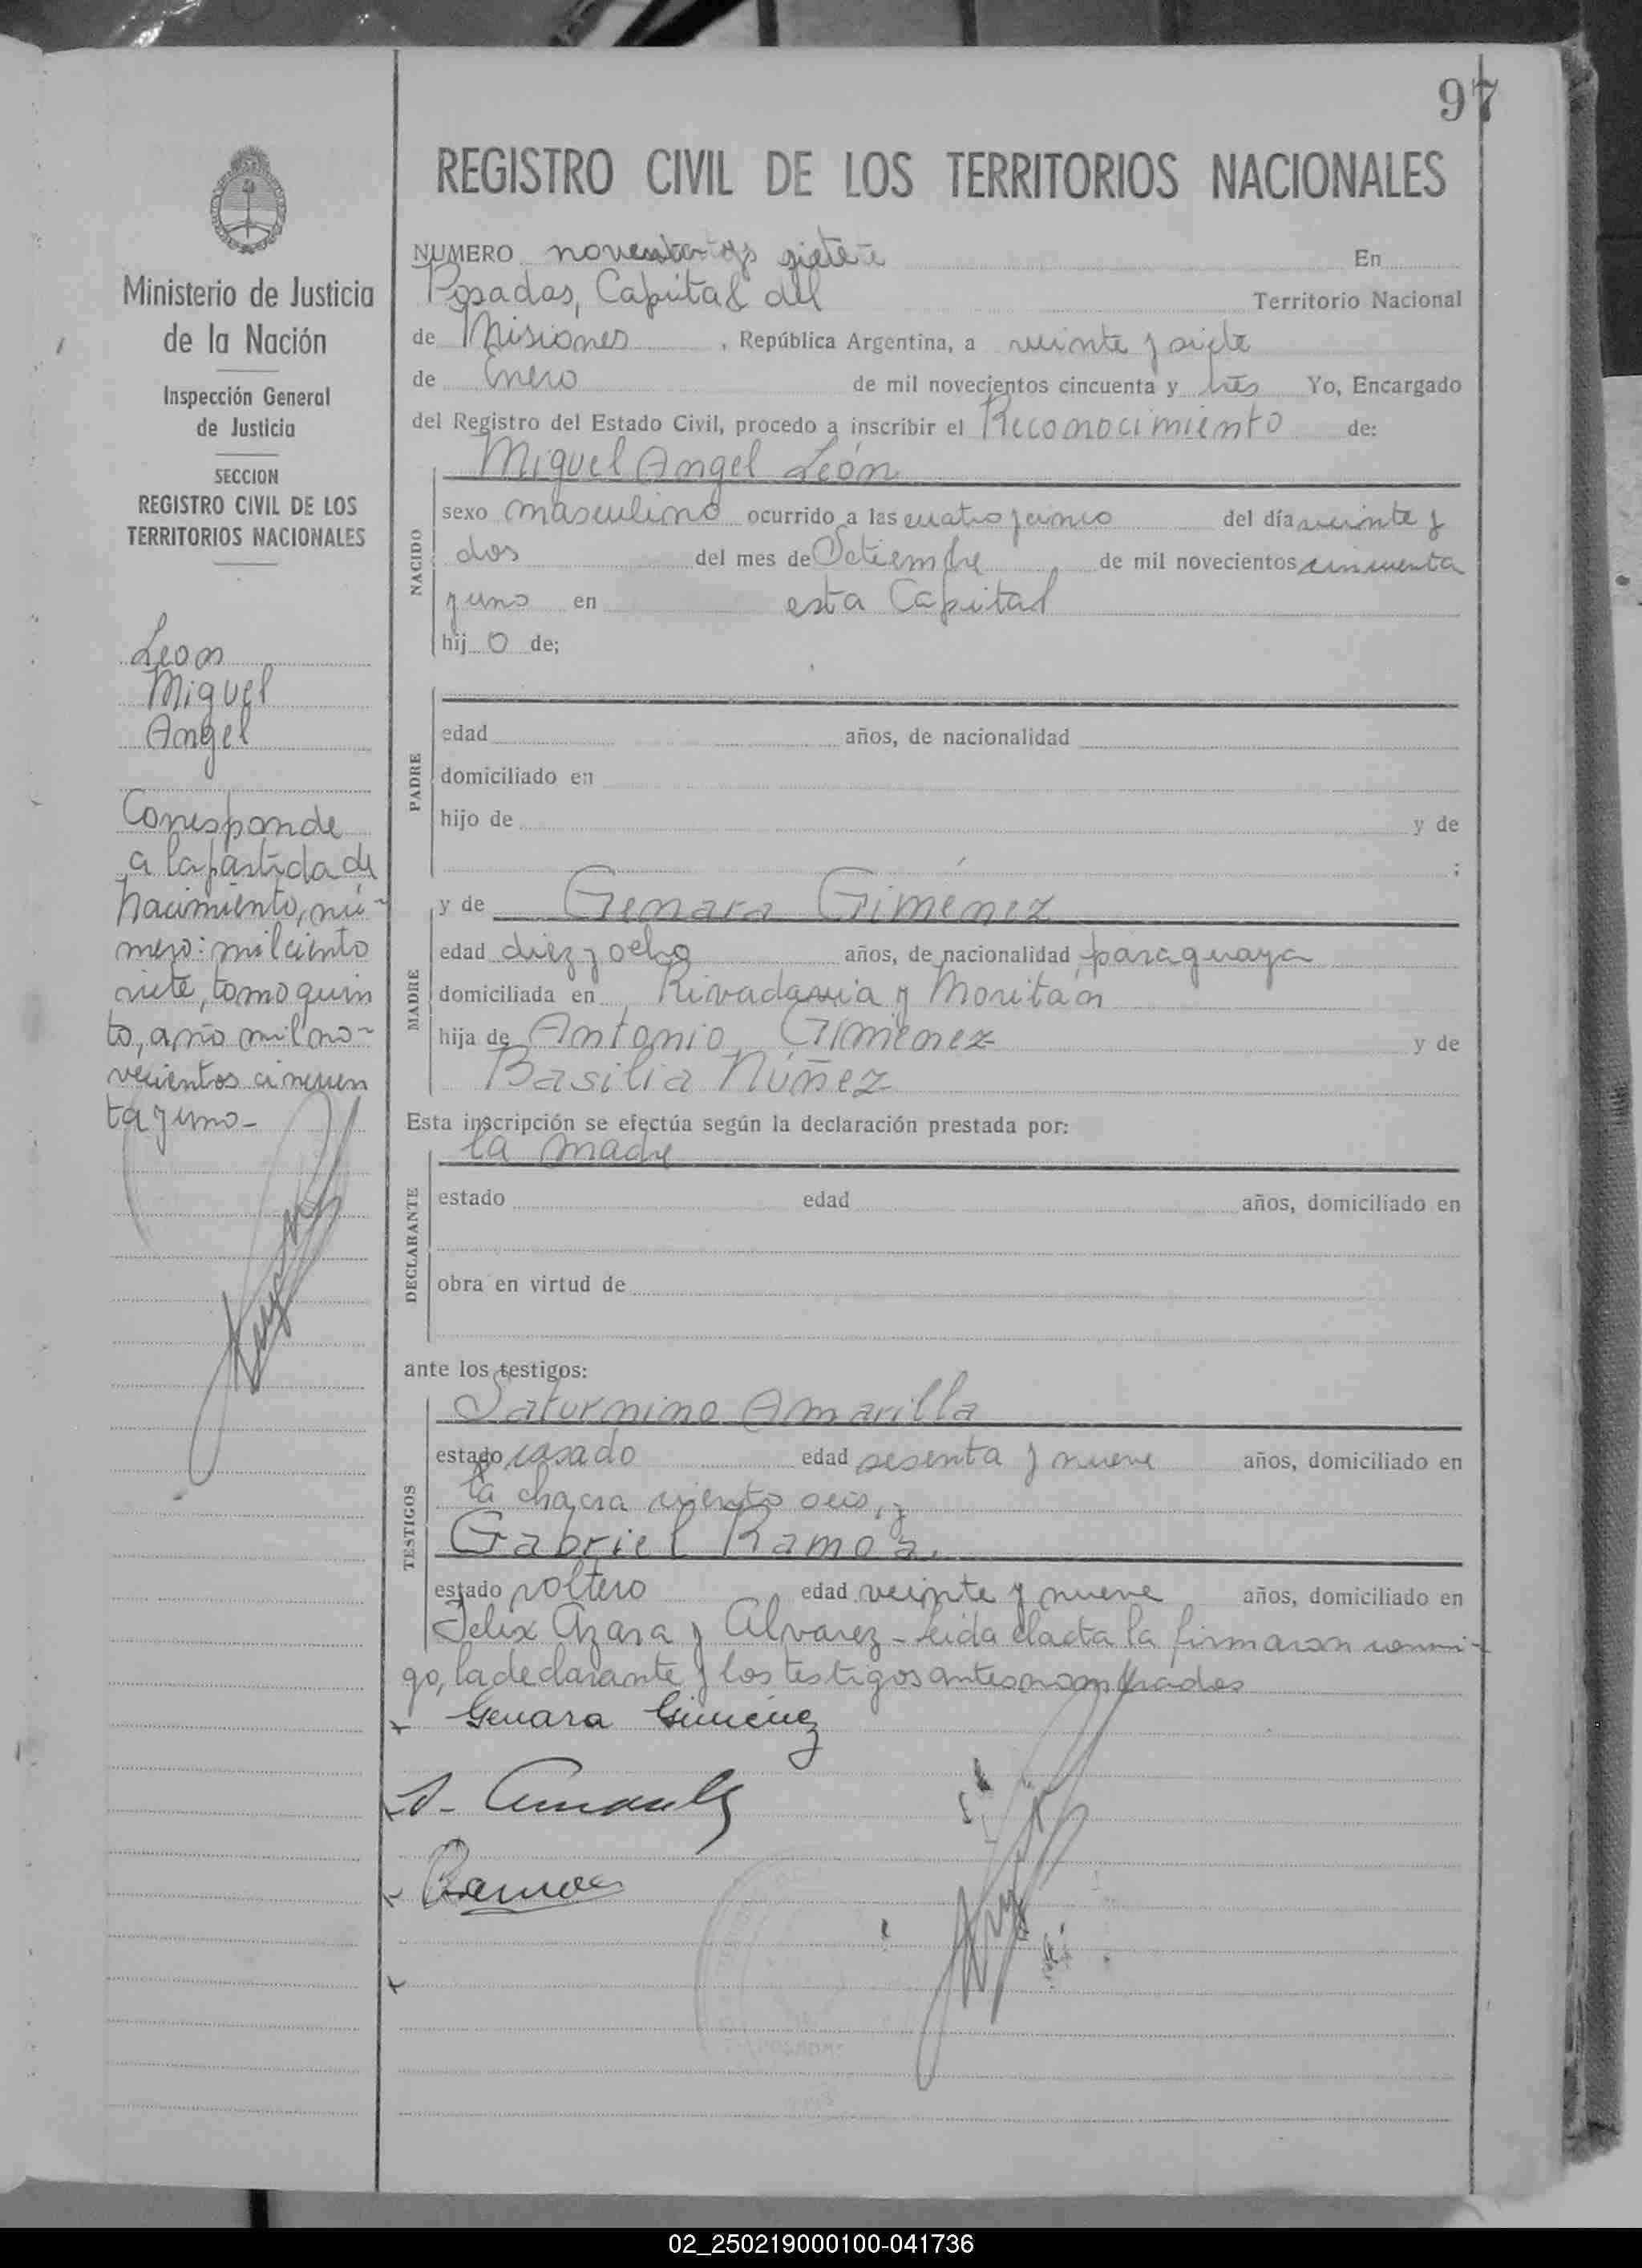 97
REGISTRO CIVIL DE LOS TERRITORIOS NACIONALES
NUMERO noventa y siete En
Posadas, Capital del Territorio Nacional
de Misiones, República Argentina, a veinte y siete
de Enero de mil novecientos cincuenta y tres Yo, Encargado
del Registro del Estado Civil, procedo a inscribir el Reconocimiento de:
Miguel Angel León
NACIDO
sexo masculino ocurrido a las cuatro del día veinte y
dos del mes de Setiembre de mil novecientos cincuenta
y uno en esta Capital
hij o de;
PADRE
edad años, de nacionalidad
domiciliado en
hijo de y de
;
MADRE
y de Genara Giménez
edad diez y ocho años, de nacionalidad paraguaya
domiciliada en Rivadavia y Moritán
hija de Antonio Giménez y de
Basilia Núñez
Esta inscripción se efectúa según la declaración prestada por:
la madre
DECLARANTE
estado edad años, domiciliado en
obra en virtud de
ante los testigos:
TESTIGOS
Saturnino Amarilla
estado casado edad sesenta y nueve años, domiciliado en
la chacra ciento seis, y
Gabriel Ramoa.
estado soltero edad veinte y nueve años, domiciliado en
Felix Azara y Alvarez - Leida el acta la firmaron conmi-
go, la declarante y los testigos antes nombrados
Genara Giménez
Ministerio de Justicia
de la Nación
Inspección General
de Justicia
SECCION
REGISTRO CIVIL DE LOS
TERRITORIOS NACIONALES
Leon
Miguel
Angel
Corresponde
a la partida de
nacimiento, nú-
mero: mil ciento
siete, tomo quin
to, año mil no-
vecientos cincuen
ta y uno-
02_250219000100-041736